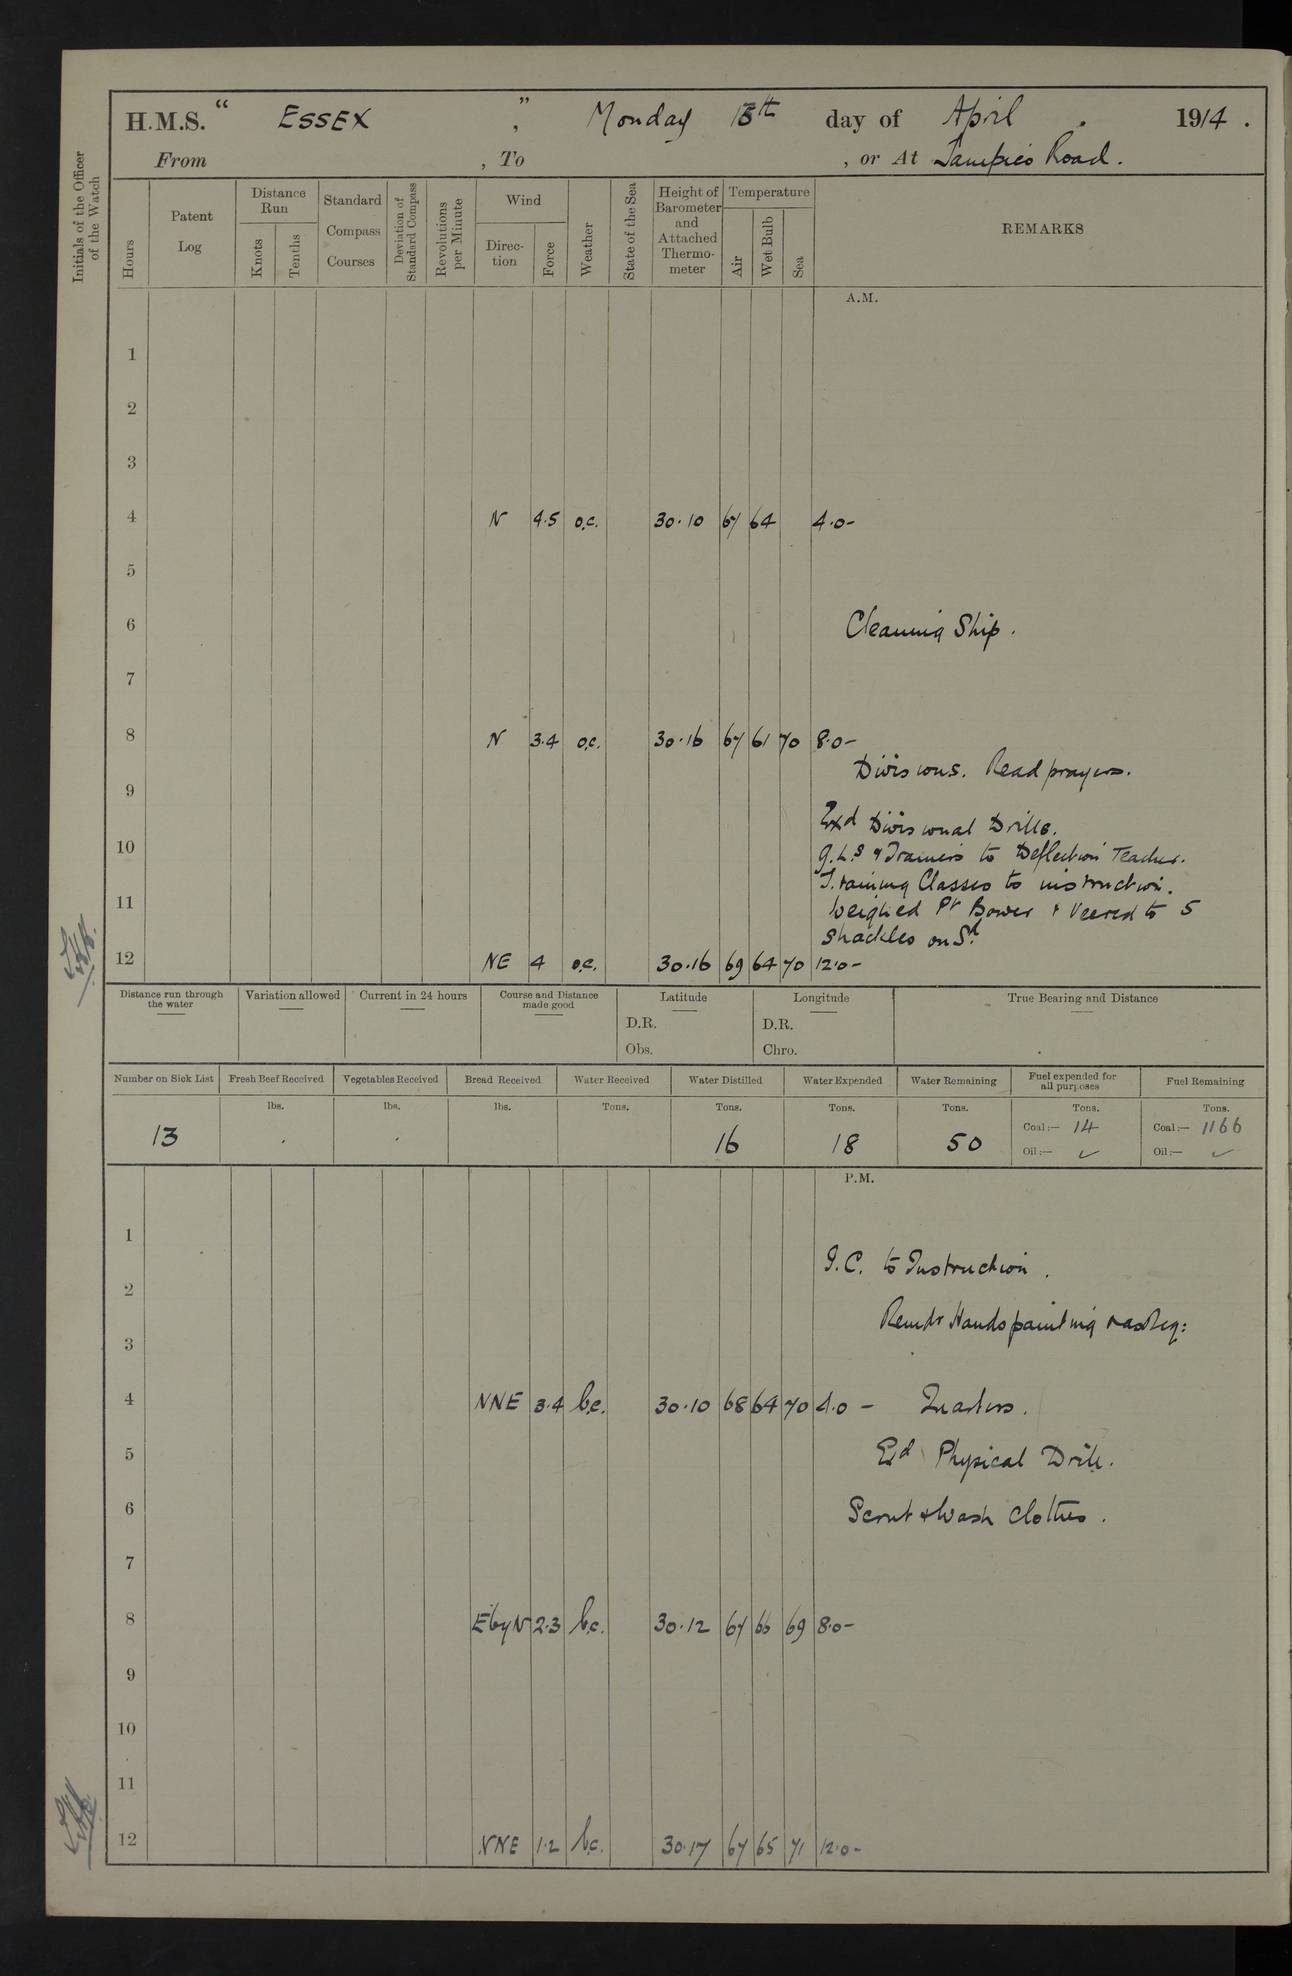 H.M.S. " ESSEX " , Monday 13th day of April . 1914 .
From , To , or At Tampico Road .
Initials of the Officer of the Watch
Hours
Patent Log
Distance Run
Knots
Tenths
Standard Compass Courses
Deviation of Standard Compass
Revolutions per Minute
Wind
Direction
Force
Weather
State of the Sea
Height of Barometer and Attached Thermometer
Temperature
Air
Wet Bulb
Sea
REMARKS
A.M.
1
2
3
4 N 4.5 o.c. 30.10 67 64 4.0-
5
6 Cleaning Ship .
7
8 N 3.4 o.c. 30.16 67 61 70 8.0-
Divisions. Read prayers.
9
Exd Divisional Drills.
10 G.L.s & Trainers to Deflection Teacher.
Training Classes to instruction.
11 Weighed Pt Bower & Veered to 5
shackles on Sd
12 NE 4 o.c. 30.16 69 64 70 12.0-
Distance run through the water
Variation allowed
Current in 24 hours
Course and Distance made good
Latitude
D.R.
Obs.
Longitude
D.R.
Chro.
True Bearing and Distance
Number on Sick List
Fresh Beef Received
Vegetables Received
Bread Received
Water Received
Water Distilled
Water Expended
Water Remaining
Fuel expended for all purposes
Fuel Remaining
lbs. lbs. lbs. Tons. Tons. Tons. Tons. Tons. Tons.
13 16 18 50
Coal:— 14 Coal:— 1166
Oil:— ✓ Oil:— ✓
P.M.
1
T.C. to Instruction .
2
Remdr Hands painting & as Req:
3
4 NNE 3.4 b.c. 30.10 68 64 70 4.0 - Quarters .
5 Exd Physical Drill.
6 Scrub & Wash Clothes .
7
8 E by N 2.3 b.c. 30.12 67 66 69 8.0-
9
10
11
12 NNE 1.2 b.c. 30.17 67 65 71 12.0-